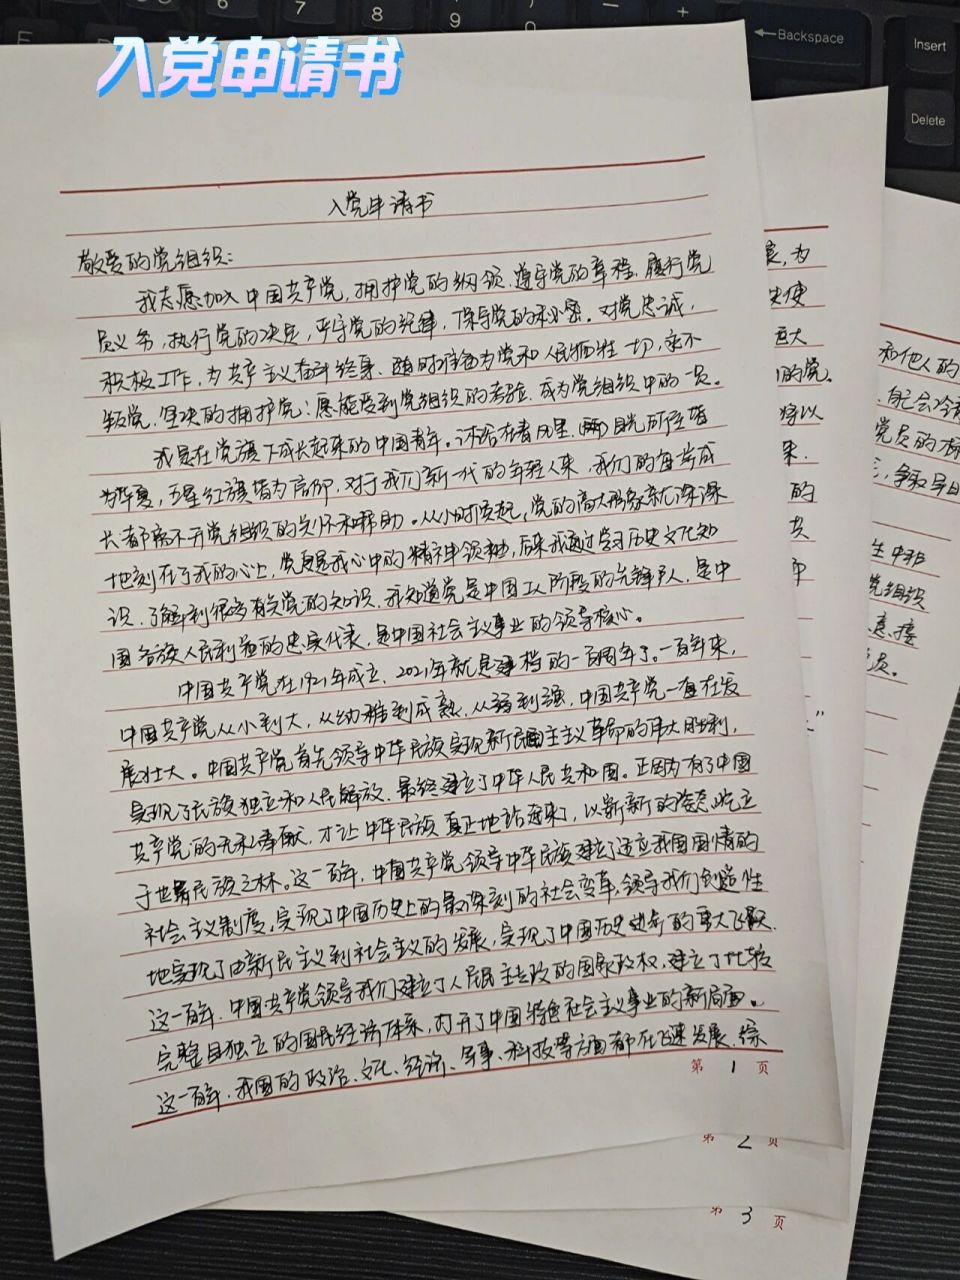 入党申请书
Backspace
Insert
Delete
7
8
9
0
入党申请书
敬爱的党组织:
我志愿加入中国共产党,拥护党的纲领,遵守党的章程,履行党
员义务,执行党的决定,严守党的纪律,保守党的秘密。对党忠诚,
积极工作,为共产主义奋斗终身,随时准备为党和人民牺牲一切,永不
叛党,坚决的拥护党;愿能受到党组织的考验,成为党组织中的一员。
我是在党旗下成长起来的中国青年。沐浴在春风里,目光所至皆
为华夏,五星红旗皆为信仰,对于我们新一代的年轻人来,我们的每步成
长都离不开党组织的关怀和帮助。从小时候起,党的高大形象就深深
地刻在了我的心上,党更是我心中的精神领袖,后来我通过学习历史文化知
识,了解到很多有关党的知识,我知道党是中国工人阶级的先锋队,是中
国各族人民利益的忠实代表,是中国社会主义事业的领导核心。
中国共产党在1921年成立,2021年就是建档的一百周年了。一百年来,
中国共产党从小到大,从幼稚到成熟,从弱到强,中国共产党一直在发
展壮大。中国共产党首先领导中华民族实现新民主主义革命的伟大胜利,
实现了民族独立和人民解放,最终建立了中华人民共和国。正因为有了中国
共产党的无私奉献,才让中华民族真正地站起来了,以崭新的姿态屹立
于世界民族之林。这一百年,中国共产党领导中华民族建立了适应我国国情的
社会主义制度,实现了中国历史上的最深刻的社会变革,领导我们创造性
地实现了由新民主主义到社会主义的发展,实现了中国历史进步的重大飞跃.
这一百年,中国共产党领导我们建立了人民民主专政的国家政权,建立了比较
完整且独立的国民经济体系,打开了中国特色社会主义事业的新局面。
这一百年,我国的政治、文化、经济、军事、科技等方面都在飞速发展,综
第 1 页
,为
使
大
的党.
将以
果.
的
共
第 2 页
和他人的
党员的标
生中非
党组织
第 3 页